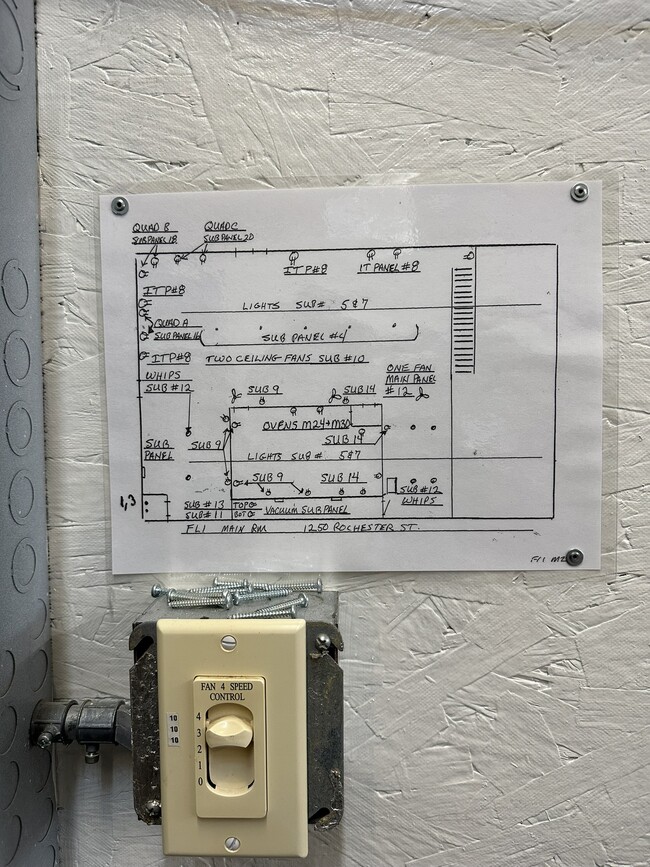 QUAD B
SUBPANEL 18
QUAD C
SUB PANEL 20
IT P#8
IT PANEL #8
IT P#8
LIGHTS SUB# 5&7
QUAD A
SUB PANEL 16
SUB PANEL #4
IT P#8
TWO CEILING FANS SUB #10
WHIPS
SUB #12
ONE FAN
MAIN PANEL
#12
SUB 9
SUB 14
OVENS M24+M30
SUB
PANEL
SUB 9
SUB 14
LIGHTS SUB# 5&7
SUB 9
SUB 14
1,3
SUB #13
SUB #11
TOP
BOT
VACUUM SUB PANEL
SUB #12
WHIPS
FL1 MAIN RM 1250 ROCHESTER ST.
FAN 4 SPEED
CONTROL
4
3
2
1
0
10
10
10